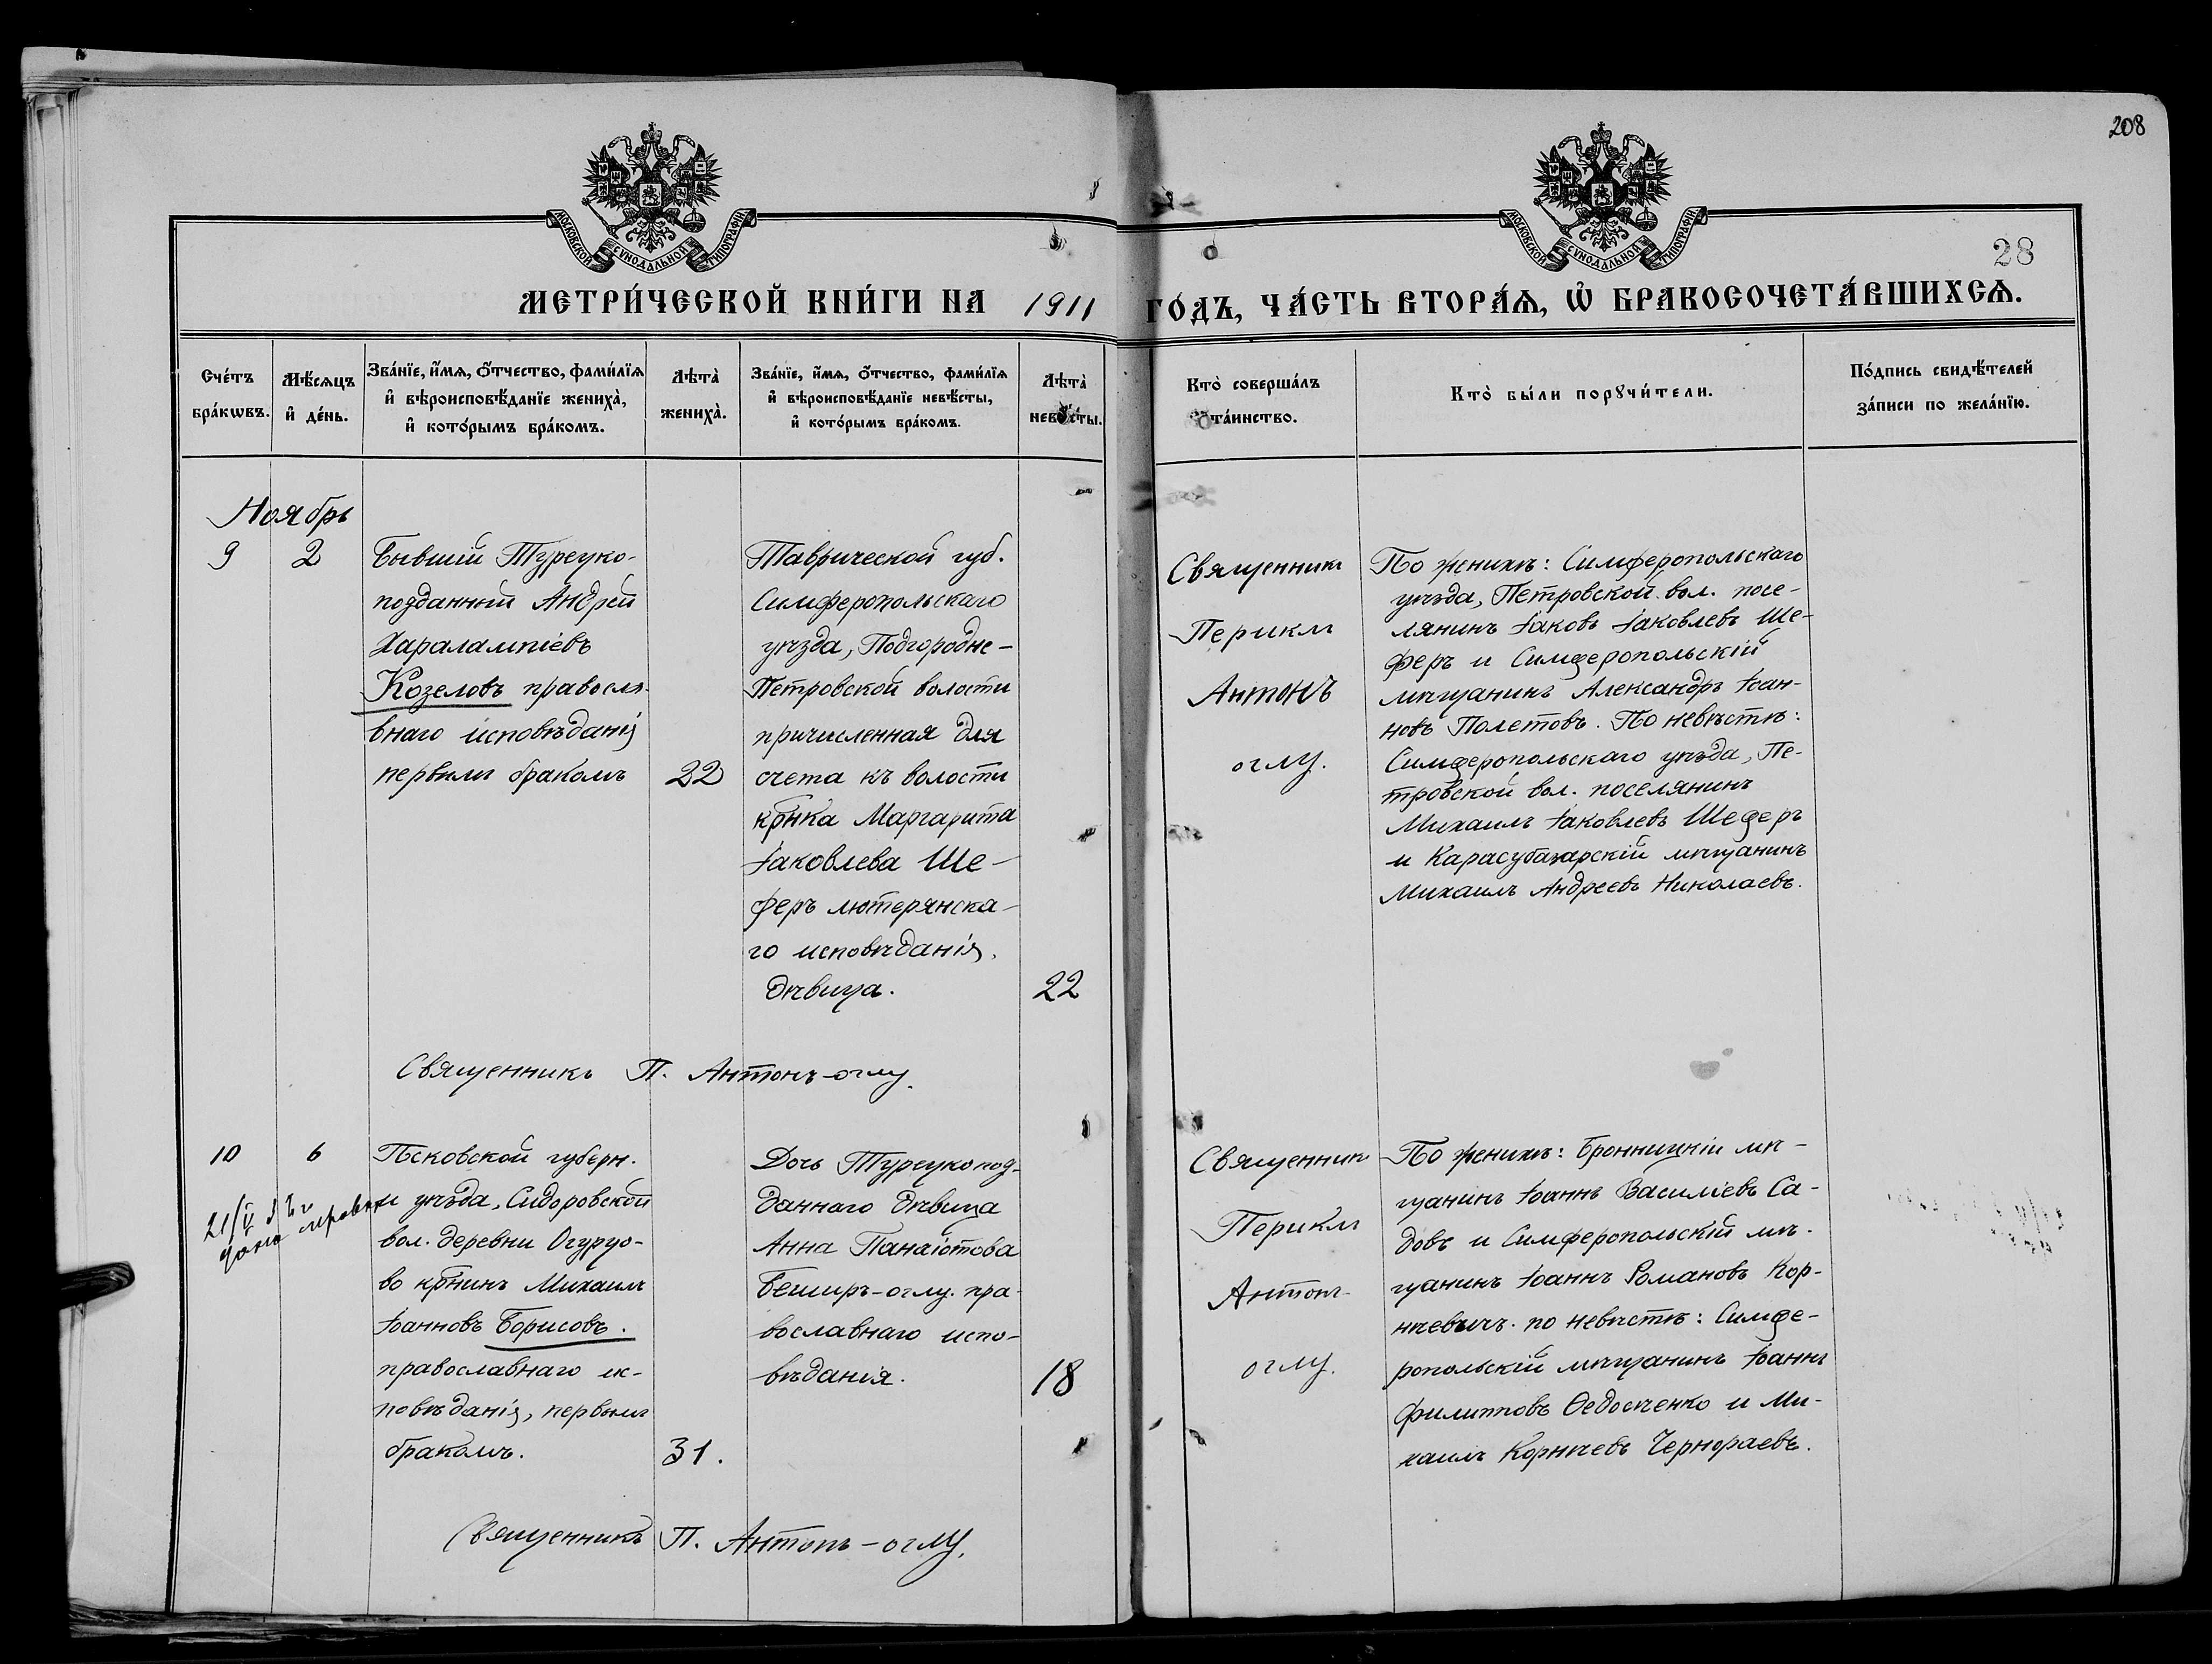 208
28
МОСКОВСКОЙ СУНОДАЛЬНОЙ ТИПОГРАФІИ.
МОСКОВСКОЙ СУНОДАЛЬНОЙ ТИПОГРАФІИ.
МЕТРИ́ЧЕСКОЙ КНИ́ГИ НА 1911 ГО́ДЪ, ЧА́СТЬ ВТОРА́Ѧ, Ѽ БРАКОСОЧЕТА́ВШИХСѦ.
Сче́тъ бра́кѡвъ.
Мѣ́сѧцъ и҆ де́нь.
Зва́нїе, и҆́мѧ, ѻ҆́тчество, фами́лїѧ
и҆ вѣроисповѣ́данїе жениха̀,
и҆ кото́рымъ бра́комъ.
Лѣта̀ жениха̀.
Зва́нїе, и҆́мѧ, ѻ҆́тчество, фами́лїѧ
и҆ вѣроисповѣ́данїе невѣ́сты,
и҆ кото́рымъ бра́комъ.
Лѣта̀ невѣ́сты.
Кто̀ соверша́лъ
та́инство.
Кто̀ бы́ли порꙋчи́тели.
По́дпись свидѣ́телей
за́писи по жела́нїю.
Ноябрь
9
2
Бывшій Турецко-
подданный Андрей
Харалампіевъ
Козеловъ правосла-
внаго исповѣданія
первымъ бракомъ
22
Таврической губ.
Симферопольскаго
уѣзда, Подгородне-
Петровской волости
причисленная для
счета къ волости
крнка Маргарита
Іаковлева Ше-
феръ лютерянска-
го исповѣданія,
дѣвица.
22
Священникъ
Периклъ
Антонъ
оглу.
По женихѣ: Симферопольскаго
уѣзда, Петровской вол. посе-
лянинъ Іаковъ Іаковлевъ Ше-
феръ и Симферопольскій
мѣщанинъ Александръ Іоан-
новъ Полетовъ. По невѣстѣ:
Симферопольскаго уѣзда, Пе-
тровской вол. поселянинъ
Михаилъ Іаковлевъ Шеферъ
и Карасубазарскій мѣщанинъ
Михаилъ Андреевъ Николаевъ.
Священникъ П. Антонъ-оглу.
10
6
21/V
Псковской губерн.
и уѣзда, Сидоровской
вол. деревни Огурцо-
во крнинъ Михаилъ
Іоанновъ Борисовъ.
православнаго ис-
повѣданія, первымъ
бракомъ.
31.
Дочь Турецкопод-
даннаго дѣвица
Анна Панаіотова
Беширъ-оглу. пра-
вославнаго испо-
вѣданія.
18
Священникъ
Периклъ
Антонъ-
оглу.
По женихѣ: Бронницкій мѣ-
щанинъ Іоаннъ Василіевъ Са-
довъ и Симферопольскій мѣ-
щанинъ Іоаннъ Романовъ Кор-
нѣевичъ. по невѣстѣ: Симфе-
ропольскій мѣщанинъ Іоаннъ
Филипповъ Ѳедосѣенко и Ми-
хаилъ Корнѣевъ Чернораевъ.
Священникъ П. Антонъ-оглу.